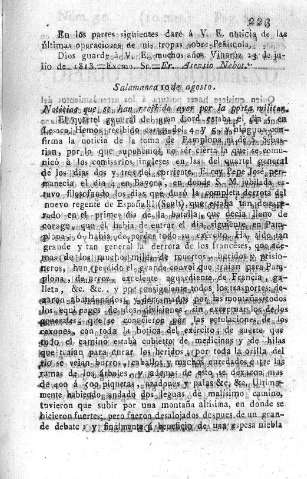 223
En los partes siguientes daré á V. E. noticia de las
últimas operaciones de mis tropas sobre Peñiscola.
Dios guarde á V. E. muchos años. Vinaroz 23 de ju-
lio de 1813. = Excmo. Sr. = Fr. Asensio Nebot.
Salamanca 10 de agosto.
Noticias que se han recibido ayer por la posta militar.
El quartel general del gran lord estaba el dia 5 en
Lesaca. Hemos recibido cartas del 4 y 5, y ninguna con-
firma la noticia de la toma de Pamplona ni de S. Sebas-
tian, por lo que aparece no ser cierta la que se comu-
nicó á los comisarios ingleses en
de los dias dos y tres del corriente. El rey Pepe José per-
manecia el dia en Bayona, en donde S. M. jubilada es-
tuvo los dias que duró la completa derrota del
nuevo regente de España (Soult), que estaba tan desespe-
rado en el primer dia de la batalla, que decia lleno de
corage, que él habia de entrar el dia siguiente en Pam-
plona, ó habia de perder todo su exército. Ha sido tan
grande y tan general la derrota de los franceses, que ade-
mas de los muchos miles de muertos, heridos y prisio-
neros, han perdido el grande convoi que traian para Pam-
plona de arroz, excelente aguardiente de Francia, ga-
lleta, &c. &c., y por consiguiente todos los trasportes de-
xaron abandonados, y derramados por las montañas todos
los equipages de dos divisiones, sin exceptuar los de los
generales, que se conocieron por las rotulaciones de los
caxones, con toda la botica del exército; de suerte que
todo el camino estaba cubierto de medicinas y de hilas
que traian para curar los heridos, y por toda la orilla del
rio se veían burros, caballos y muchos enredados entre las
ramas de los árboles, y ademas de esto se dexaron mas
de 400 ó 500 piquetas, azadones y palas &c. &c. Ultima-
mente habiendo andado dos leguas de malísimo camino,
tuvieron que subir por una montaña altísima, en donde se
hicieron fuertes; pero fueron desalojados despues de un gran-
de debate, y finalmente á beneficio de una espesa niebla